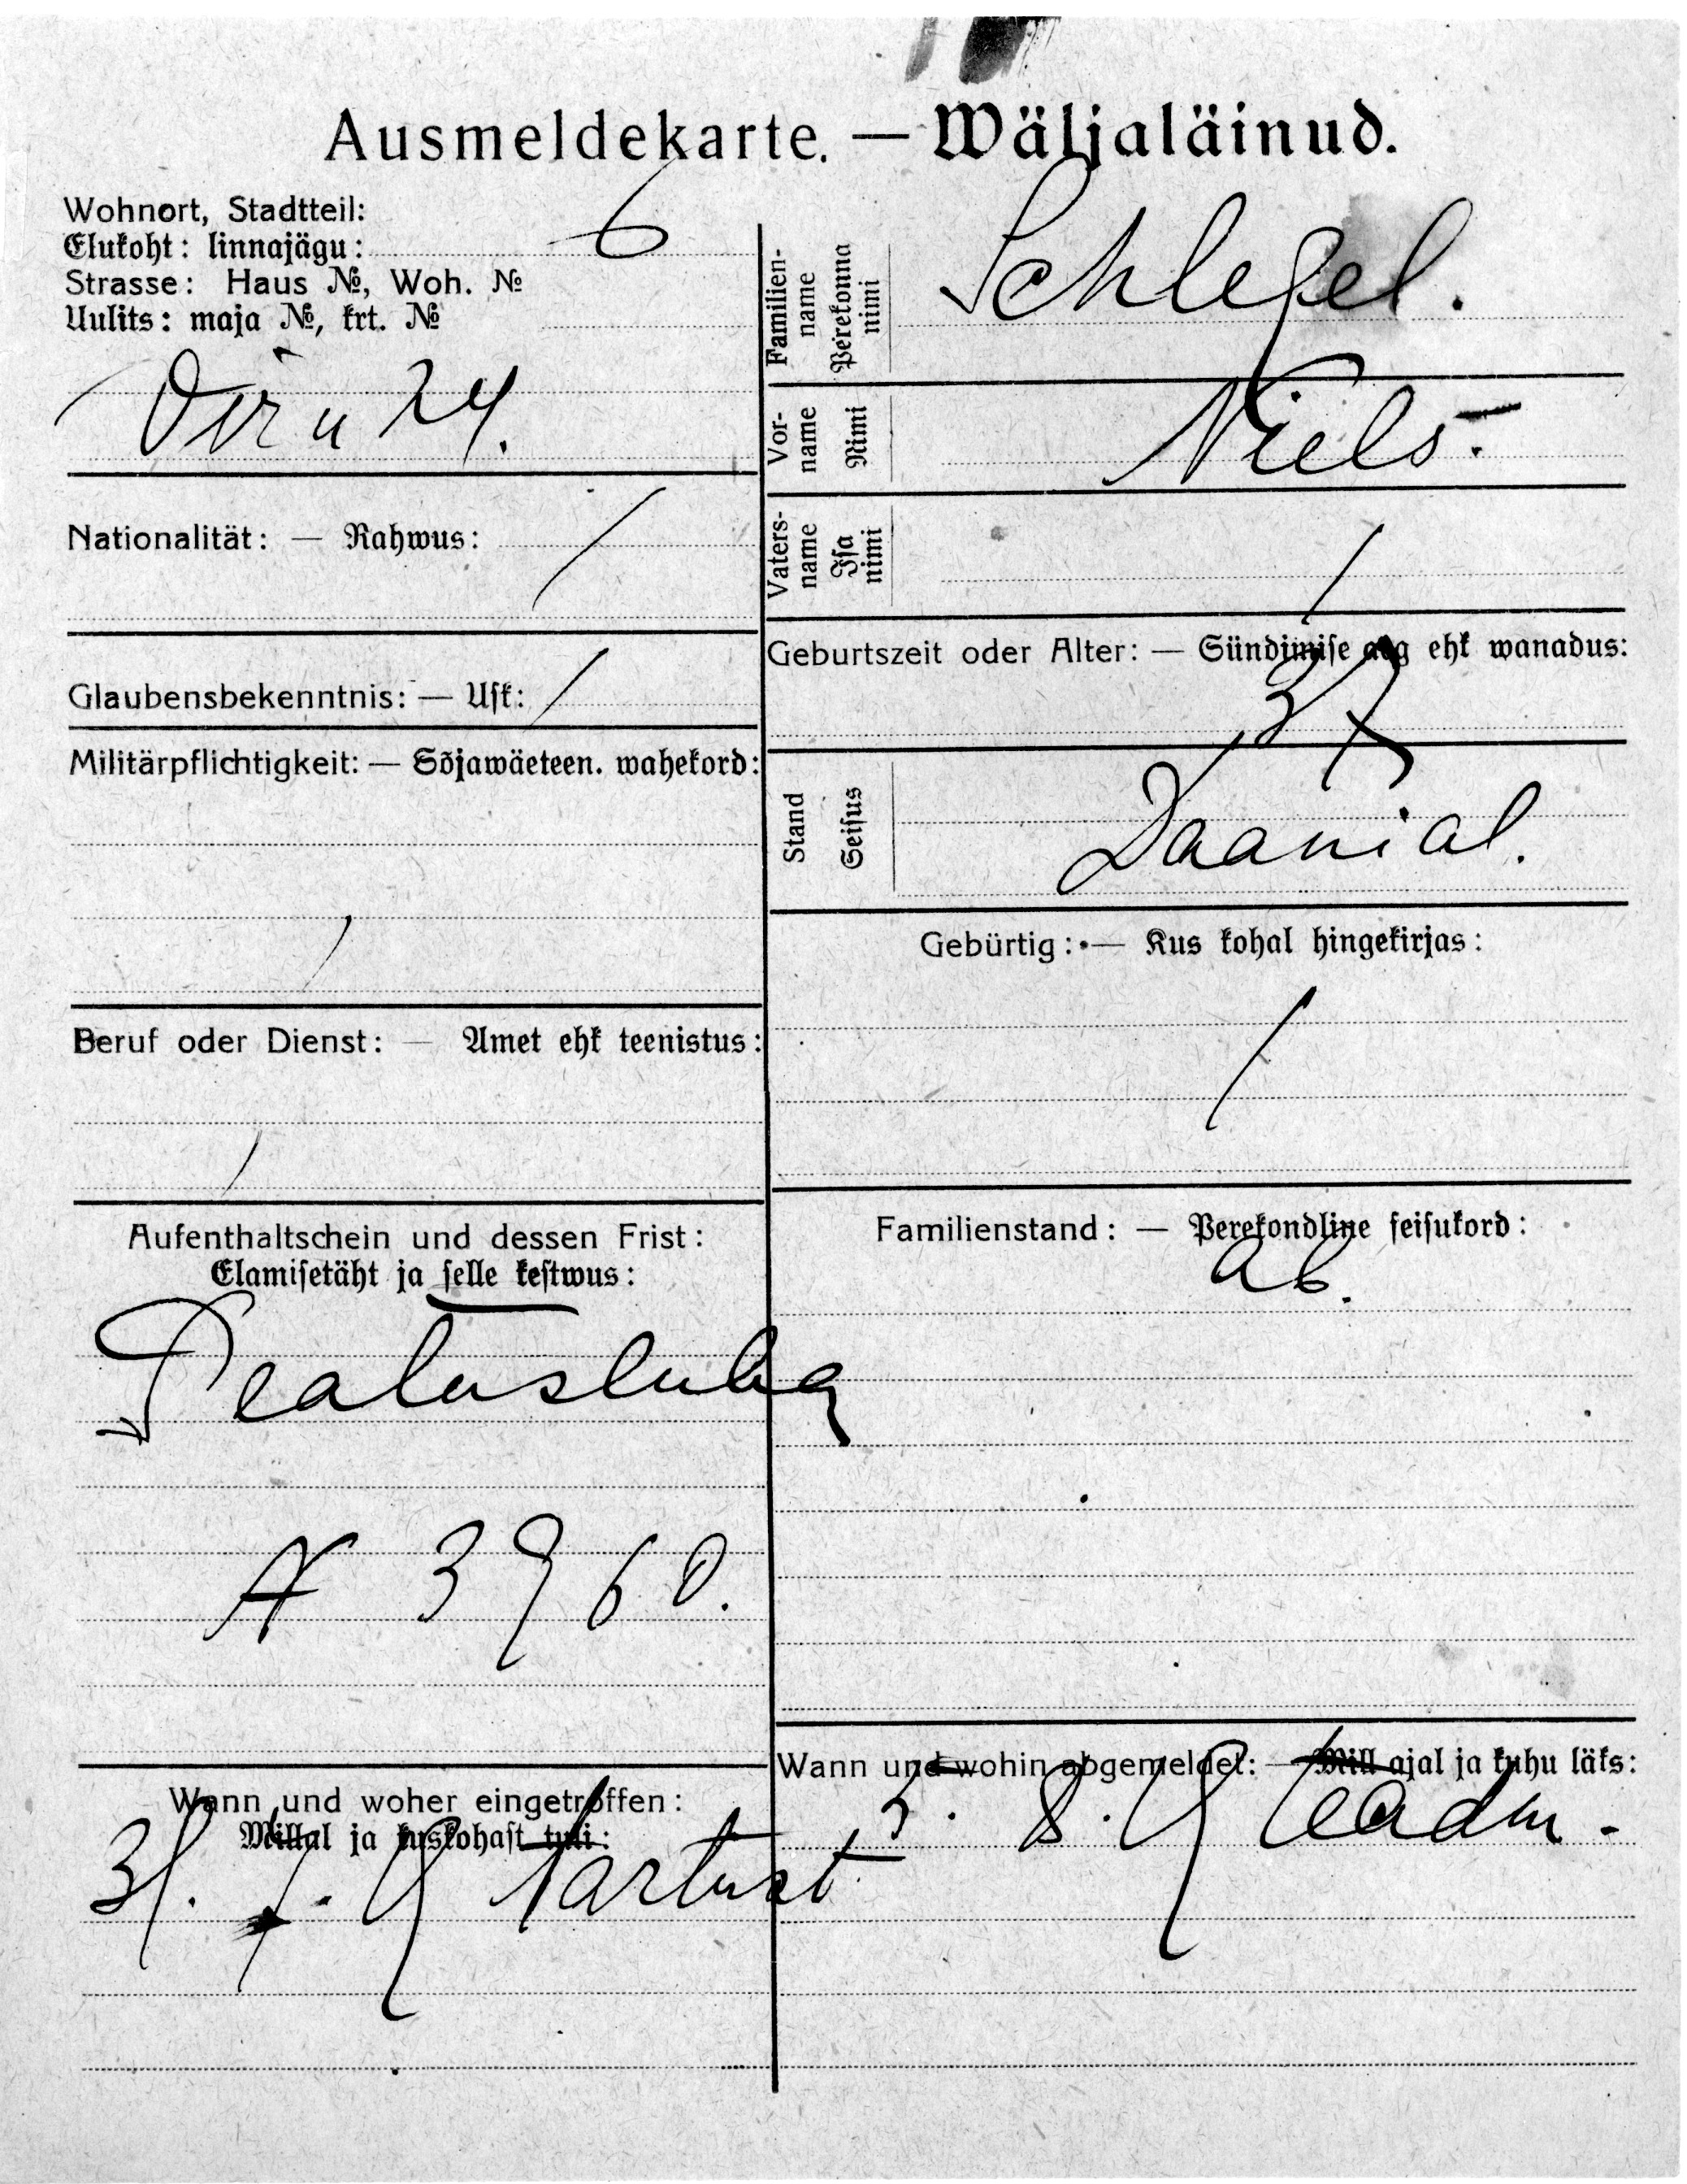 Ausmeldekarte. — Wäljaläinud.
Wohnort, Stadtteil:
Elukoht: linnajägu: 6
Strasse: Haus №, Woh. №
Uulits: maja №, krt. №
Viru 24.
Nationalität: — Rahwus: /
Glaubensbekenntnis: — Usk: /
Militärpflichtigkeit: — Sõjawäeteen. wahekord:
/
Beruf oder Dienst: — Amet ehk teenistus:
/
Aufenthaltschein und dessen Frist:
Elamisetäht ja selle kestwus:
Peatusluba
№ 3960.
Wann und woher eingetroffen:
Millal ja kuskohast tuli:
31. 7. 19 Tartust
Familien-
name
Perekonna
nimi
Schlegel.
Vor-
name
Nimi
Niels.
Vaters-
name
Isa
nimi
/
Geburtszeit oder Alter: — Sündimise aeg ehk wanadus:
37
Stand
Seisus
Daani al.
Gebürtig: — Kus kohal hingekirjas:
/
Familienstand: — Perekondline seisukord:
ab.
Wann und wohin abgemeldet: — Mill ajal ja kuhu läks:
5. 8. 19 teadm.